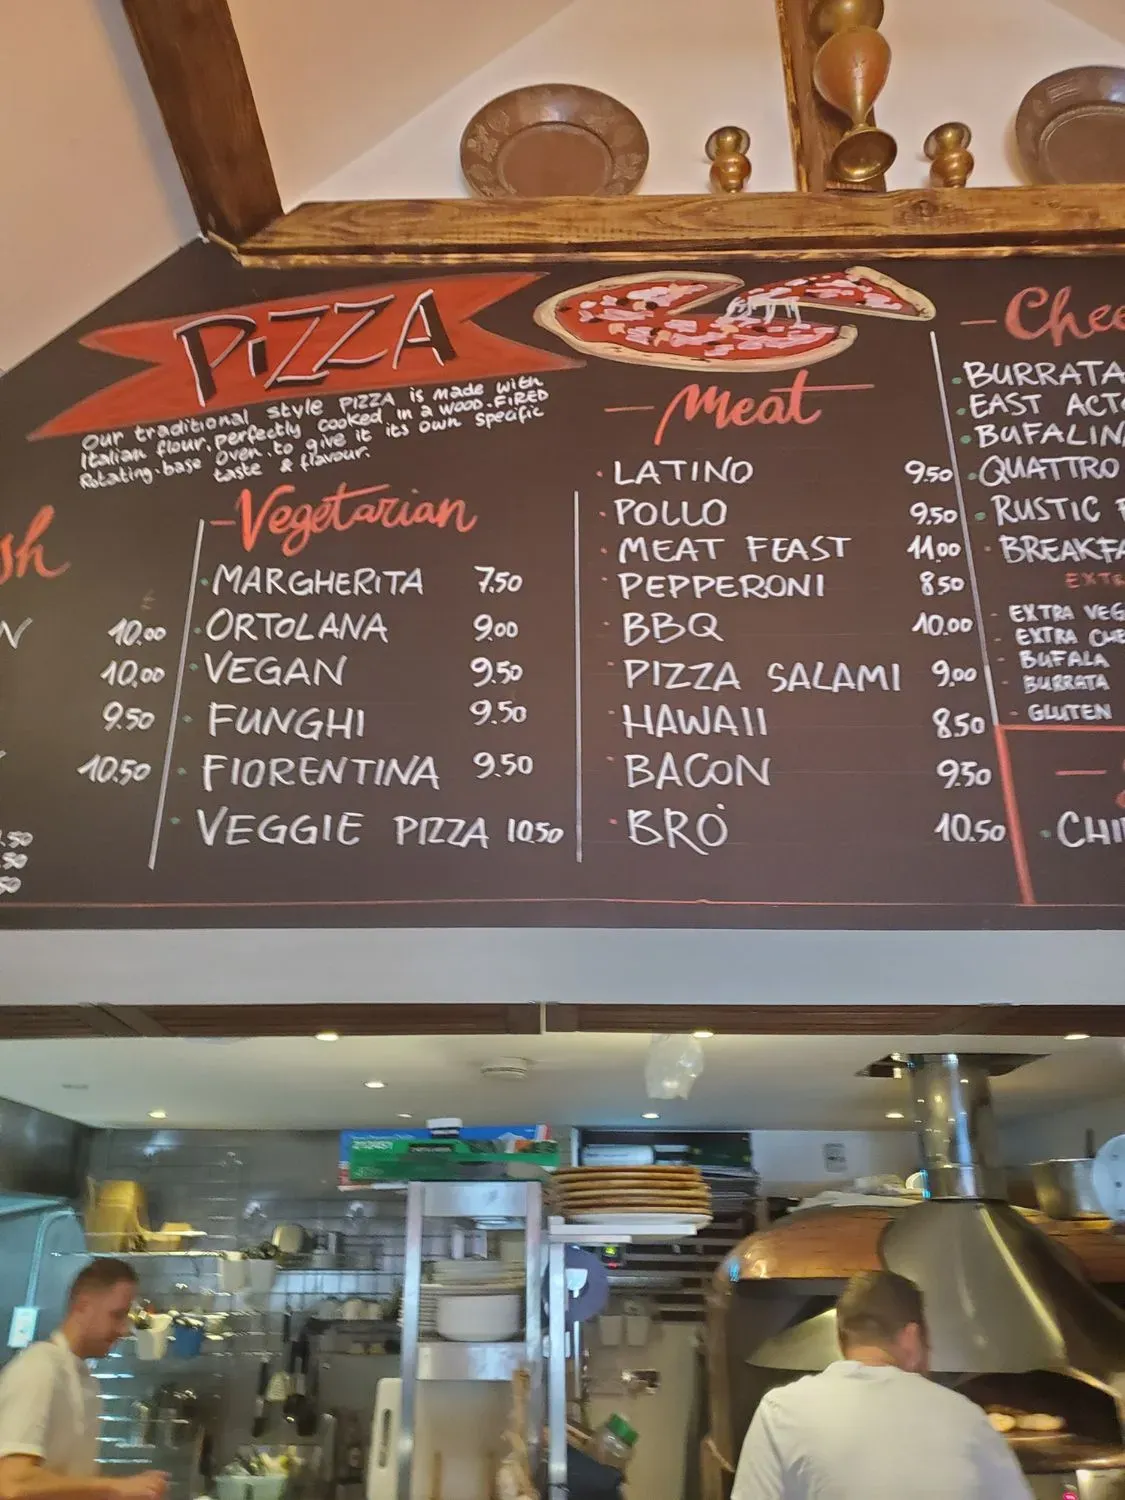 PIZZA
Our traditional style PIZZA is made with
Italian flour, perfectly cooked in a wood-FIRED
Rotating-base oven to give it its own specific
taste & flavour.
10.00
10.00
9.50
10.50
- Vegetarian
MARGHERITA 7.50
ORTOLANA 9.00
VEGAN 9.50
FUNGHI 9.50
FIORENTINA 9.50
VEGGIE PIZZA 10.50
- Meat
LATINO 9.50
POLLO 9.50
MEAT FEAST 11.00
PEPPERONI 8.50
BBQ 10.00
PIZZA SALAMI 9.00
HAWAII 8.50
BACON 9.50
BRO 10.50
BURRATA
EAST
QUATTRO
RUSTIC
EXTRA
EXTRA
BUFALA
BURRATA
GLUTEN